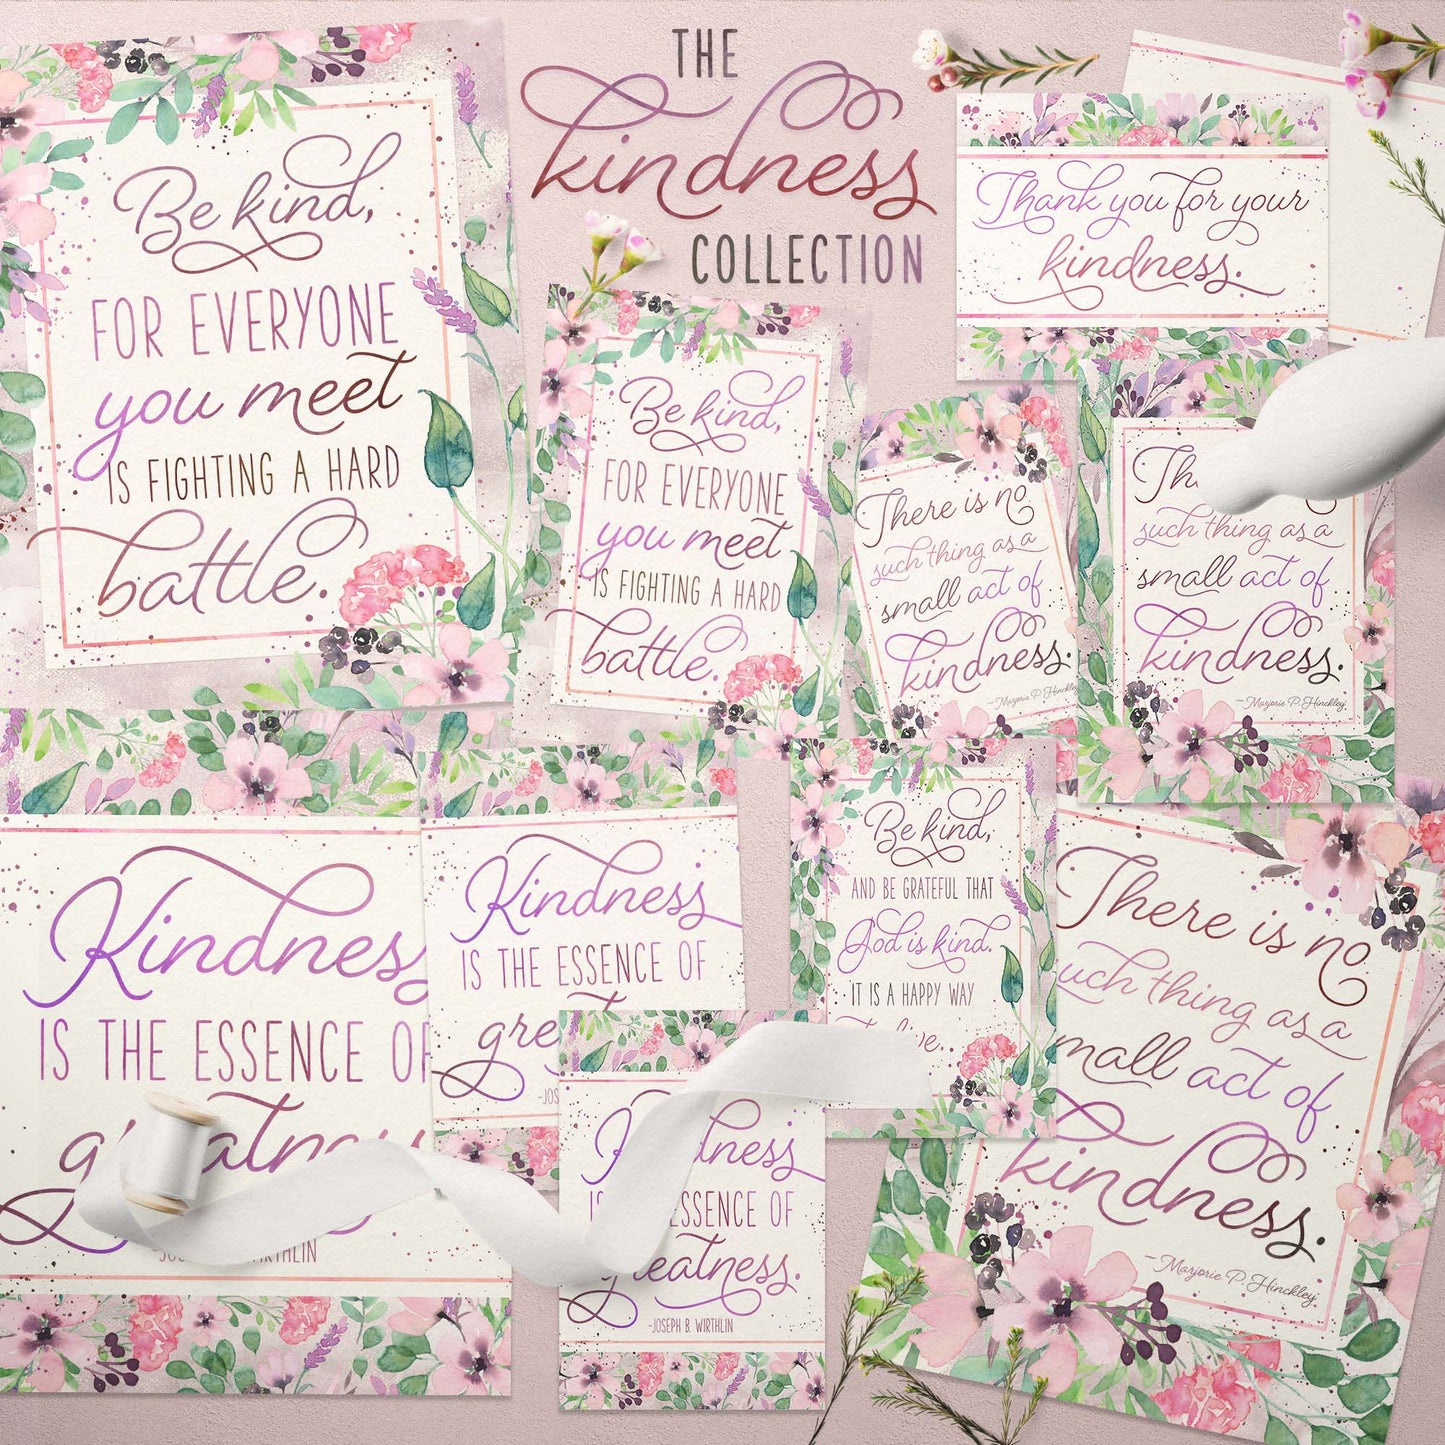 THE
kindness
COLLECTION
Be kind,
FOR EVERYONE
you meet
IS FIGHTING A HARD
battle.
Be kind,
FOR EVERYONE
you meet
IS FIGHTING A HARD
battle.
Thank you for your
kindness.
There is no
such thing as a
small act of
kindness.
-Marjorie P. Hinckley
such thing as a
small act of
kindness.
-Marjorie P. Hinckley
Kindness
IS THE ESSENCE OF
WIRTHLIN
Kindness
IS THE ESSENCE OF
Be kind,
AND BE GRATEFUL THAT
God is kind.
IT IS A HAPPY WAY
ESSENCE OF
greatness.
-JOSEPH B. WIRTHLIN
There is no
such thing as a
small act of
kindness.
-Marjorie P. Hinckley